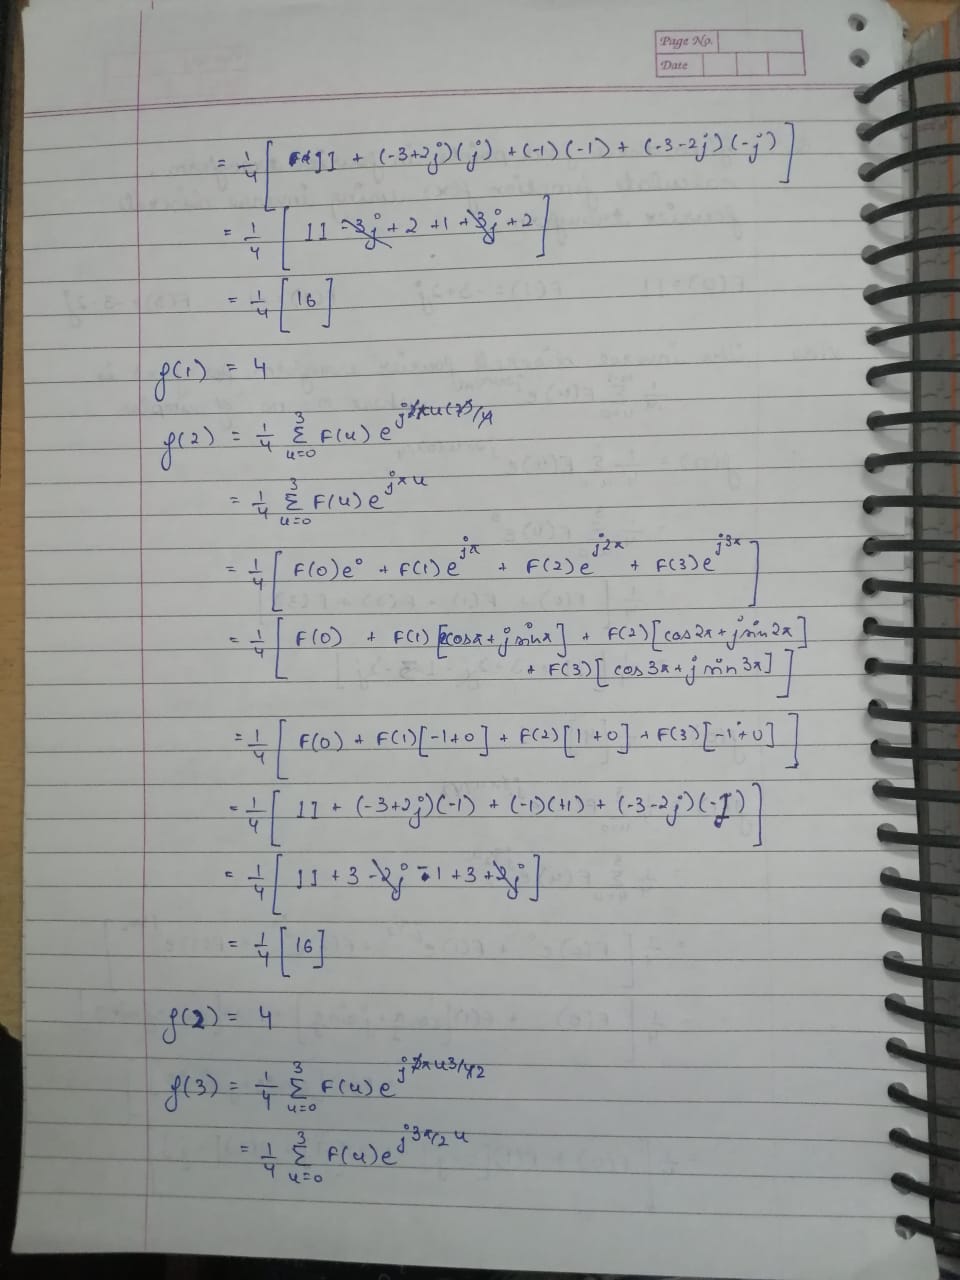 Page No.
Date
= 1/4 [ 11 + (-3+2j)(j) + (-1)(-1) + (-3-2j)(-j) ]
= 1/4 [ 11 -3j + 2 + 1 + 3j + 2 ]
= 1/4 [ 16 ]
f(1) = 4
f(2) = 1/4 Σ_{u=0}^{3} F(u) e^{j2πu(2)/4}
= 1/4 Σ_{u=0}^{3} F(u) e^{jπu}
= 1/4 [ F(0)e^0 + F(1)e^{jπ} + F(2)e^{j2π} + F(3)e^{j3π} ]
= 1/4 [ F(0) + F(1) [cosπ + j sinπ] + F(2) [cos2π + j sin2π]
+ F(3) [cos3π + j sin3π] ]
= 1/4 [ F(0) + F(1) [-1+0] + F(2) [1+0] + F(3) [-1+0] ]
= 1/4 [ 11 + (-3+2j)(-1) + (-1)(+1) + (-3-2j)(-1) ]
= 1/4 [ 11 + 3 - 2j - 1 + 3 + 2j ]
= 1/4 [ 16 ]
f(2) = 4
f(3) = 1/4 Σ_{u=0}^{3} F(u) e^{j2πu3/42}
= 1/4 Σ_{u=0}^{3} F(u) e^{j3π/2 u}